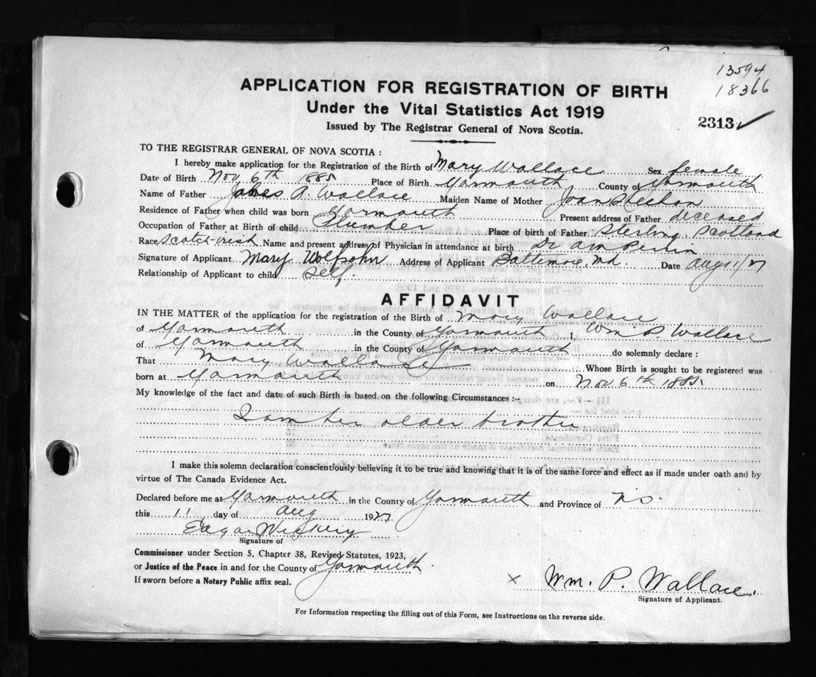 13594
18366
APPLICATION FOR REGISTRATION OF BIRTH
Under the Vital Statistics Act 1919
2313 ✓
Issued by The Registrar General of Nova Scotia.
TO THE REGISTRAR GENERAL OF NOVA SCOTIA :
I hereby make application for the Registration of the Birth of Mary Wallace Sex female
Date of Birth Nov 6th 1885 Place of Birth Yarmouth County of Yarmouth
Name of Father A. Wallace Maiden Name of Mother Joan Sheehan
Residence of Father when child was born Yarmouth Present address of Father deceased
Occupation of Father at Birth of child Plumber Place of birth of Father Sterling Scotland
Race Scotch-irish Name and present address of Physician in attendance at birth Dr A M Perrin
Signature of Applicant Mary Wolfsohn Address of Applicant Baltimore, Md. Date Aug 11/27
Relationship of Applicant to child Self.
AFFIDAVIT
IN THE MATTER of the application for the registration of the Birth of Mary Wallace
of Yarmouth in the County of Yarmouth I, Wm P. Wallace
of Yarmouth in the County of Yarmouth do solemnly declare :
That Mary Wallace Whose Birth is sought to be registered was
born at Yarmouth on Nov 6th 1885
My knowledge of the fact and date of such Birth is based on the following Circumstances :-
I am her older brother
I make this solemn declaration conscientiously believing it to be true and knowing that it is of the same force and effect as if made under oath and by
virtue of The Canada Evidence Act.
Declared before me at Yarmouth in the County of Yarmouth and Province of N.S.
this 11 day of Aug 1927
Edgar
Signature of
Commissioner under Section 5, Chapter 38, Revised Statutes, 1923,
or Justice of the Peace in and for the County of Yarmouth.
If sworn before a Notary Public affix seal.
x Wm. P. Wallace.
Signature of Applicant.
For Information respecting the filling out of this Form, see Instructions on the reverse side.